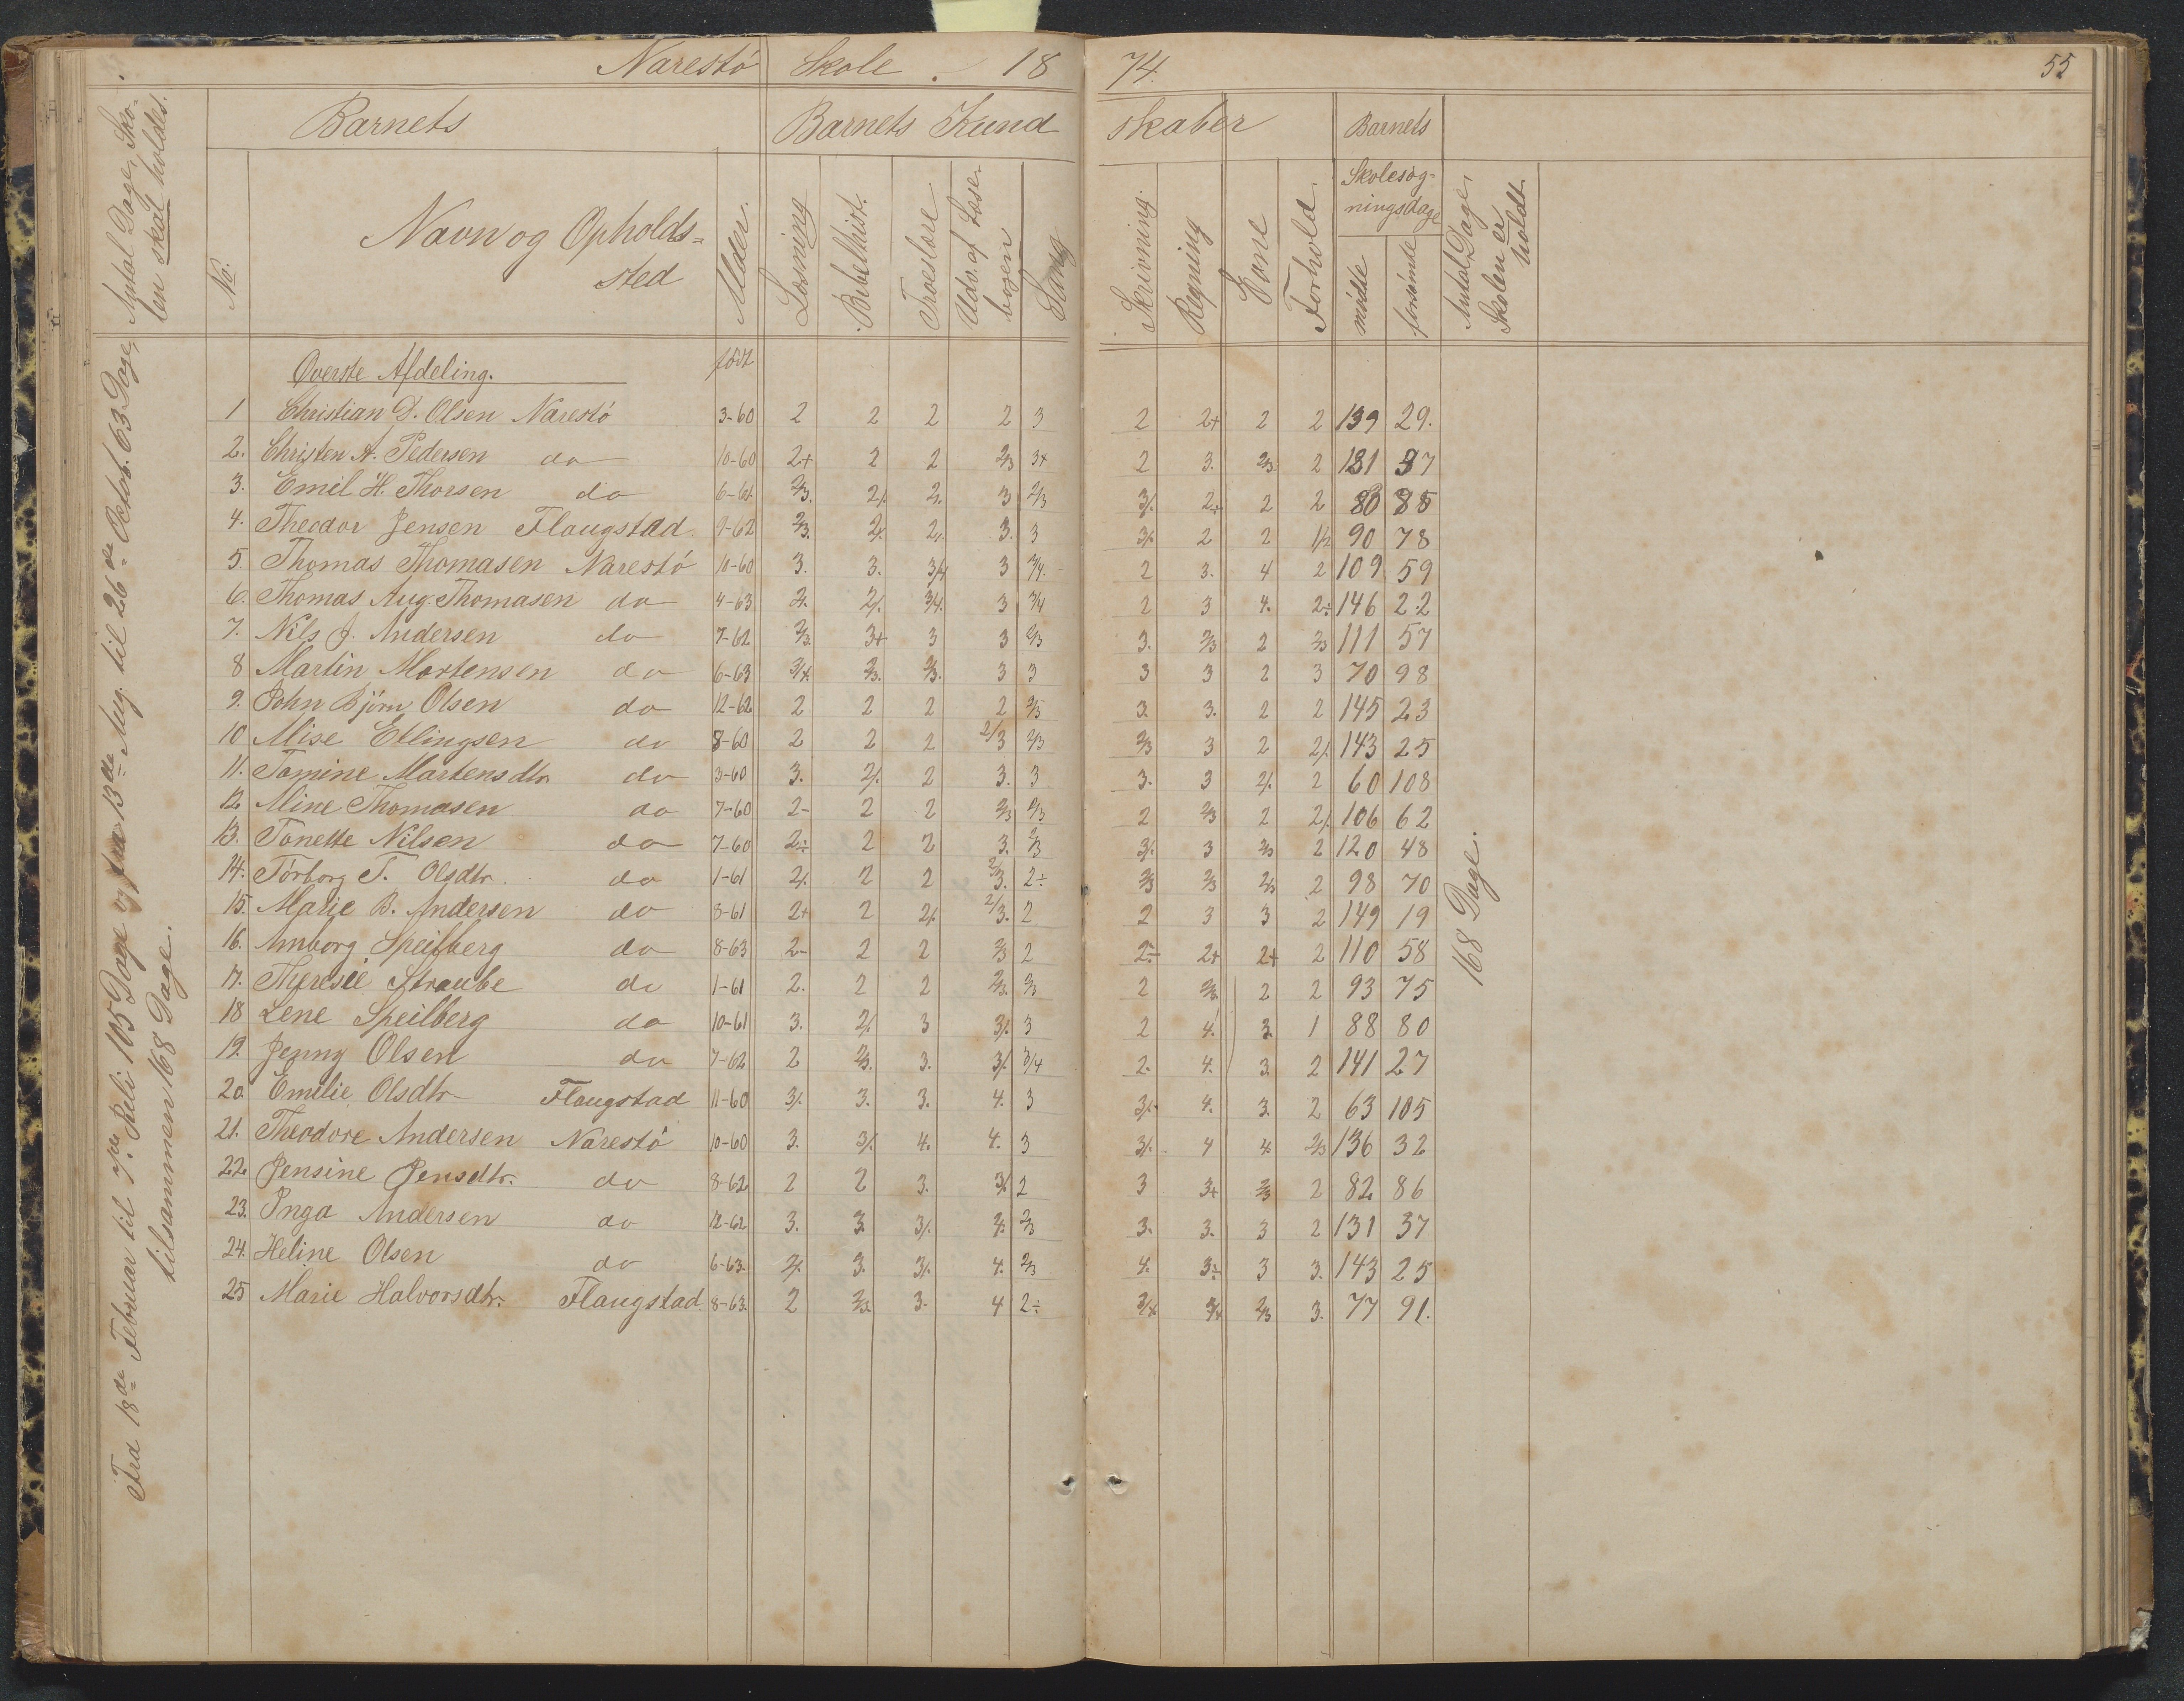 Narestö Skole. 1874.
55
Antal Dage, Sko-
len skal holdes.
Barnets
Barnets Kundskaber
Barnets
No.
Navn og Opholds-
sted
Alder.
Læsning
Bibelhist.
Troeslære
Udv. af Læse-
bogen
Sang
Skrivning.
Regning
Evne
Forhold.
Skolesøg-
ningsdage
mödte
forsömte
Antal Dage,
Skolen er
holdt.
Fra 18de Februar til 7de Juli 105 Dage og fra 13de Aug. til 26de Octob. 63 Dage,
tilsammen 168 Dage.
Överste Afdeling. född
1 Christian D. Olsen Narestö 3-60 2 2 2 2 3 2 2+ 2 2 139 29.
2. Christen A. Pedersen do 10-60 2+ 2 2 2/3 3+ 2 3. 2/3 2 131 37
3. Emil H. Thorsen do 6-61 2/3. 2/. 2. 3 2/3 3/. 2+ 2 2 80 88
4. Theodor Jensen Flaugstad 9-62 2/3. 2/. 2/. 3. 3 3/. 2 2 1/2 90 78
5. Thomas Thomasen Narestö 10-60 3. 3. 3/4 3 3/4. 2 3. 4 2 109 59
6. Thomas Aug. Thomasen do 4-63 2/. 2/. 3/4. 3 3/4 2 3 4. 2÷ 146 22
7. Nils J. Andersen do 7-62 2/3. 3+ 3 3 2/3 3. 2/3 2 2/3 111 57
8 Martin Mortensen do 6-63 3/4. 2/3. 2/3. 3 3 3 3 2 3 70 98
9. John Björn Olsen do 12-62 2 2 2 2 2/3 3. 3. 2 2 145 23
10 Alise Ellingsen do 8-60 2 2 2 2/3 2/3 2/3 3 2 2/. 143 25
11. Tomine Martensdtr. do 3-60 3. 2/. 2 3. 3 3. 3 2/. 2 60 108
12. Aline Thomasen do 7-60 2- 2 2 2/3 2/3 2 2/3 2 2/. 106 62
13. Tonette Nilsen do 7-60 2÷ 2 2 3. 2/3 3/. 3 2/3 2 120 48
14. Torborg T. Olsdtr. do 1-61 2/. 2 2 2/3. 2÷ 2/3 2/3 2/3 2 98 70
15. Marie B. Andersen do 8-61 2+ 2 2/. 2/3. 2 2 3 3 2 149 19
16. Amborg Speilberg do 8-63 2- 2 2 2/3 2 2÷ 2+ 2+ 2 110 58
17. Theresie Straube do 1-61 2. 2 2 2/3. 2/3 2 2/3. 2 2 93 75
18 Lene Speilberg do 10-61 3. 2/. 3 3/. 3 2 4. 3. 1 88 80
19. Jenny Olsen do 7-62 2 2/3. 3. 3/. 3/4 2. 4. 3. 2 141 27
20. Emilie Olsdtr Flaugstad 11-60 3/. 3. 3. 4. 3 3/. 4. 3. 2 63 105
21. Theodore Andersen Narestö 10-60 3. 3/. 4. 4. 3 3/. 4 4. 2/3 136 32
22. Jensine Jensdtr. do 8-62 2 2 3. 3/. 2 3 3+ 2/3 2 82 86
23. Inga Andersen do 12-62 3. 3. 3/. 4. 2/3 3. 3. 3 2 131 37
24. Heline Olsen do 6-63. 2/. 3. 3/. 4. 2/3 4. 3÷ 3 3. 143 25
25 Marie Halvorsdtr. Flaugstad 8-63. 2 2/3. 3. 4 2÷ 3/4 3/4 2/3 3. 77 91.
168 Dage.